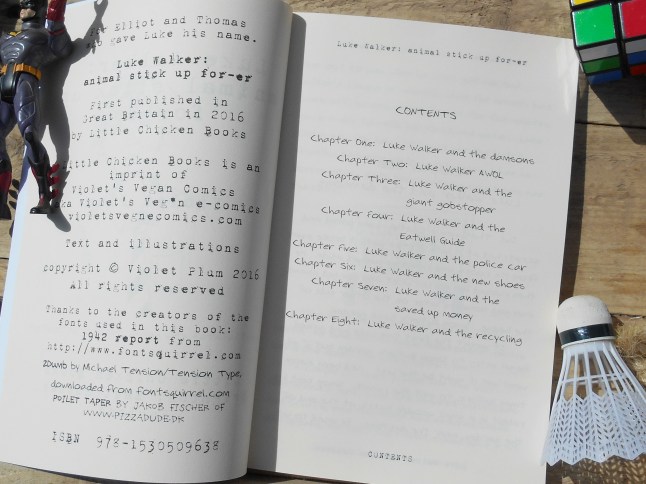 For Elliot and Thomas
who gave Luke his name.
Luke Walker:
animal stick up for-er
First published in
Great Britain in 2016
by Little Chicken Books
Little Chicken Books is an
imprint of
Violet's Vegan Comics
aka Violet's Veg*n e-comics
violetsvegnecomics.com
Text and illustrations
copyright © Violet Plum 2016
All rights reserved
Thanks to the creators of the
fonts used in this book:
1942 report from
http://www.fontsquirrel.com
2Dumb by Michael Tension/Tension Type,
downloaded from fontsquirrel.com
POILET TAPER BY JAKOB FISCHER OF
WWW.PIZZADUDE.DK
ISBN 978-1530509638
Luke Walker: animal stick up for-er
CONTENTS
Chapter One: Luke Walker and the damsons
Chapter Two: Luke Walker AWOL
Chapter Three: Luke Walker and the
giant gobstopper
Chapter Four: Luke Walker and the
Eatwell Guide
Chapter Five: Luke Walker and the police car
Chapter Six: Luke Walker and the new shoes
Chapter Seven: Luke Walker and the
saved up money
Chapter Eight: Luke Walker and the recycling
CONTENTS